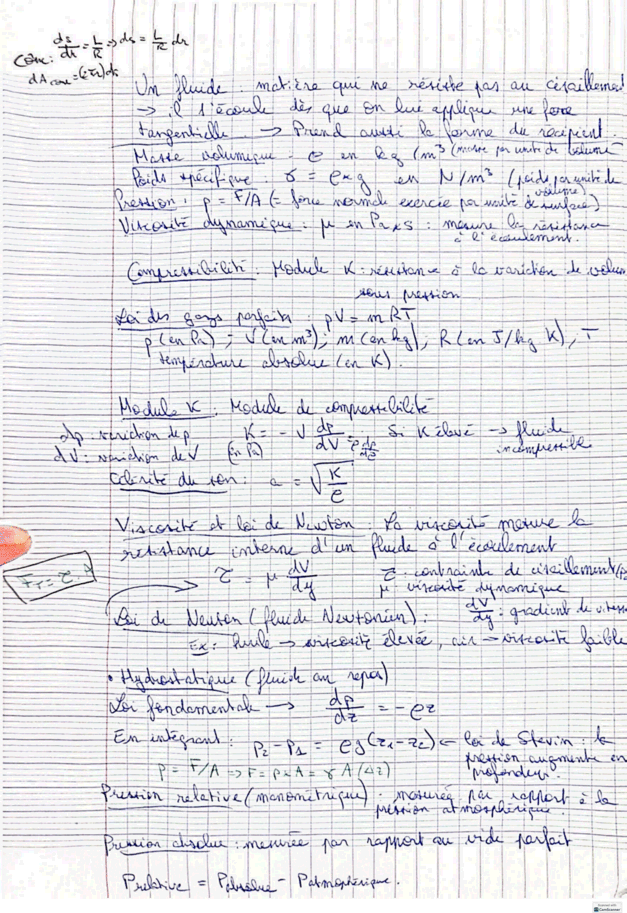 Cône : ds/dr = L/R => ds = L/R dr
dA cône = (2πr) ds
Un fluide : matière qui ne résiste pas au cisaillement
→ il s'écoule dès que on lui applique une force
tangentielle. → Prend aussi la forme du récipient.
Masse volumique : ρ en kg/m³ (masse par unité de volume
Poids spécifique : γ = ρ×g en N/m³ (poids par unité de volume)
Pression : p = F/A (= force normale exercée par unité de surface)
Viscosité dynamique : μ en Pa×s : mesure la résistance à l'écoulement.
Compressibilité : Module K : résistance à la variation de volum
sous pression
Loi des gaz parfaits : pV = mRT
p (en Pa) ; V (en m³) ; m (en kg) ; R (en J/kg K), T
température absolue (en K).
Module K : Module de compressibilité
dp : variation de p K = - V dp/dV = ρ dp/dρ Si K élevé → fluide
dV : variation de V (en Pa) incompressible
Célérité du son : a = √(K/ρ)
Viscosité et loi de Newton : La viscosité mesure la
résistance interne d'un fluide à l'écoulement
τ = μ dV/dy τ : contrainte de cisaillement (Pa
F_T = τ.A μ viscosité dynamique
Loi de Newton (fluide Newtonien) : dV/dy : gradient de vitess
Ex : huile → viscosité élevée, air → viscosité faible
• Hydrostatique (fluide au repos)
Loi fondamentale → dp/dz = -ρz
En intégrant : p₂ - p₁ = ρg(z₁-z₂) ← loi de Stevin : la
pression augmente en
p = F/A => F = p×A = γ A (Δz) profondeur.
Pression relative (manométrique) : mesurée par rapport à la
pression atmosphérique.
Pression absolue : mesurée par rapport au vide parfait
Prelative = Pabsolue - Patmosphérique.
Scanned with
CamScanner